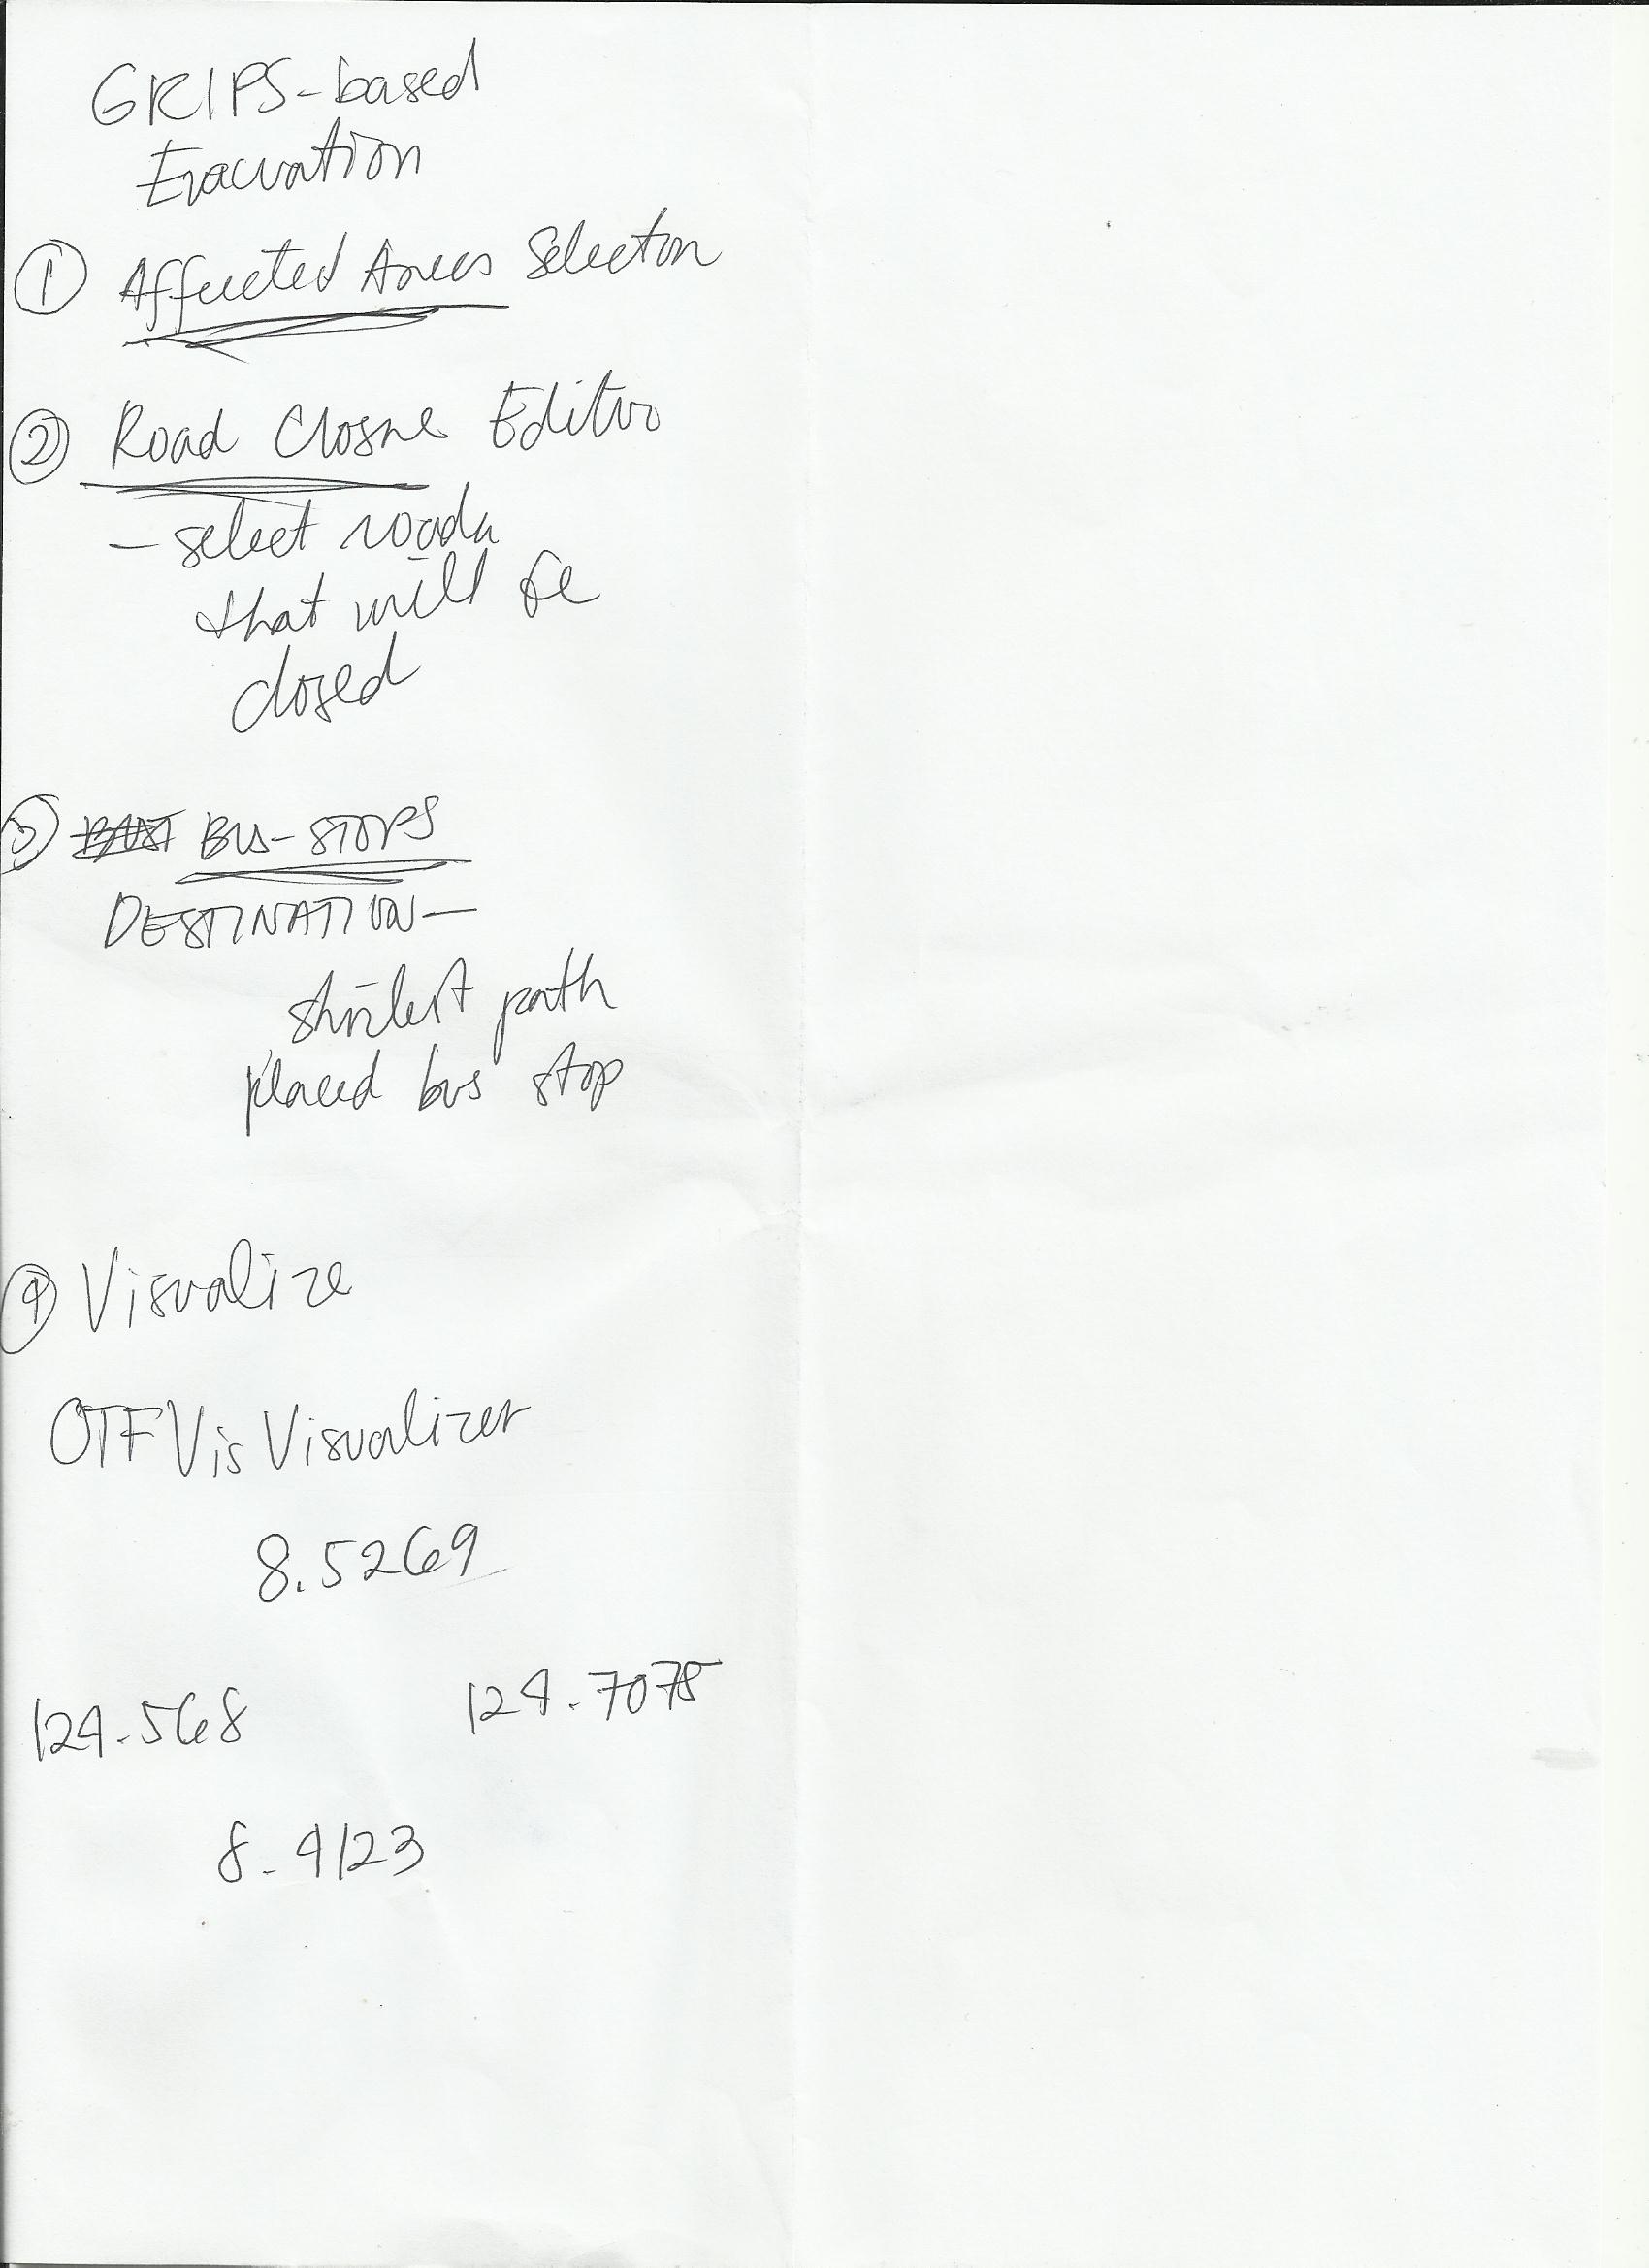 GRIPS-based
Evacuation
① Affected Areas Selector
② Road Closure Editor
- select roads
that will be
closed
③ BUS-STOPS
DESTINATION-
shortest path
placed bus stop
④ Visualize
OTFVis Visualizer
8.5269
124.568 124.7075
8.4123